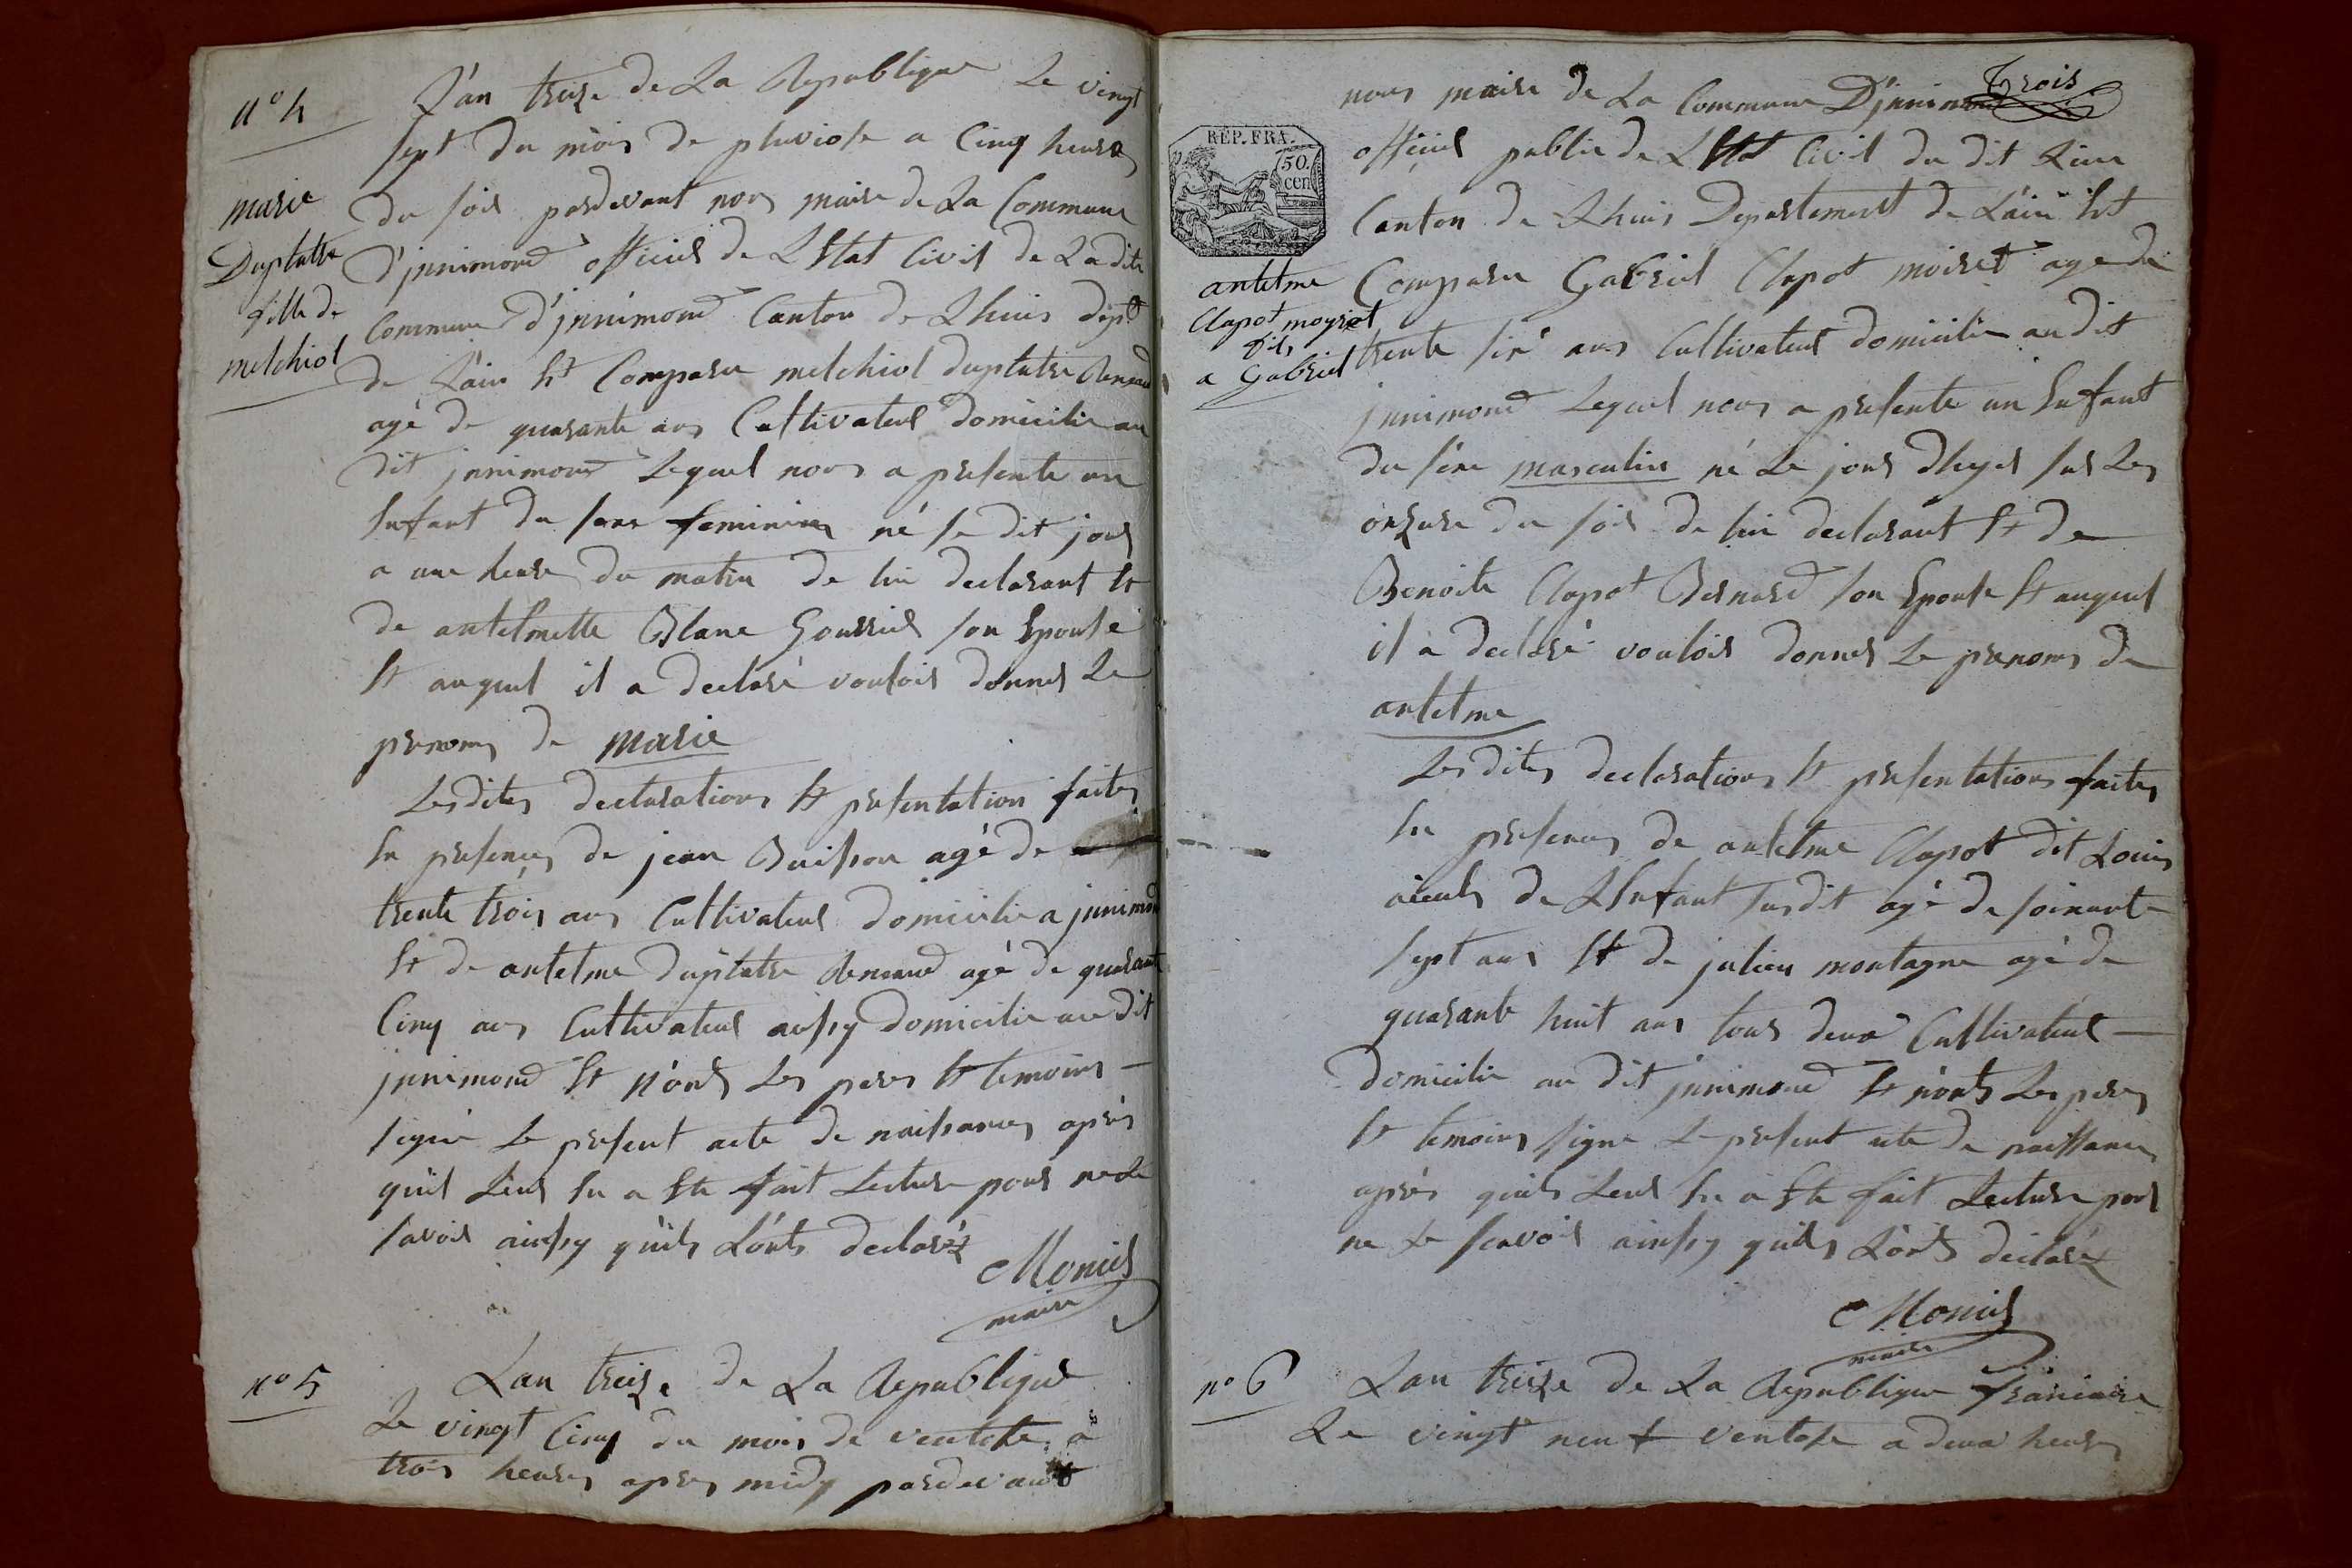 n° 4
marie
Duplatre
fille de
melchiol
L'an treize de La Republique Le vingt
sept du mois de pluviose a Cinq heures
du soir pardevant nous maire de La Commune
d'jnnimond officier de L'Etat Civil de Ladite
Commune d'jnnimond Canton de Lhuis dept
de L'ain Et Comparu melchiol duplatre Renaud
agé de quarante ans Cultivateur domicilie au
dit jnnimond Lequel nous a presente un
Enfant du sexe feminin né se dit jour
a une heure du matin de lui declarant Et
de antelmette Blanc Goussier son Epouse
Et auquel il a declaré vouloir donner Le
prenoms de marie
Lesdites declarations Et presentation faites
En presences de jean Buisson agé de
trente trois ans Cultivateur domicilie a jnnimond
Et de antelme duplatre Renaud agé de quarante
Cinq ans Cultivateur aussy domicilie au dit
jnnimond Et n'onts Les peres Et temoins
signé Le present acte de naissances après
quil Leur En a Ete fait Lecture pour ne Le
savoir ainssy quils L'onts declaré
Monier
maire
n° 5
Lan treize de La Republique
Le vingt Cinq du mois de ventose a
trois heures apres midy pardevant
Trois
nous maire de La Commune D'jnnimond
REP. FRA.
50
cen
officier public de L'Etat Civil du dit Lieu
Canton de Lhuis Departement de L'ain Est
antelme
Clapot moyret
fils
a Gabriel
Comparu Gabriel Clapot moiret age de
trente six ans Cultivateur domicilie au dit
jnnimond Lequel nous a presente un Enfant
du sexe masculin né Le jour d'hyer sur Les
onzure du soir de lui declarant Et de
Benoite Clapot Bernard son Epouse Et auquel
il a declaré vouloir donner Le prenoms de
antelme
Les dites declarations Et presentations faites
En presences de antelme Clapot dit Louis
aieuls de L'Enfant susdit agé de soixante
sept ans Et de julien montagne agé de
quarante huit ans tous deux Cultivateur
domicilie au dit jnnimond Et n'onts Les peres
Et temoins signe Le present acte de naissances
après quils Leur En a Ete fait Lecture pour
ne Le scavoir ainssy quils L'onts declaré
Monier
maire
n° 6
Lan treize de La Republique francaise
Le vingt neuf ventose a deux heures